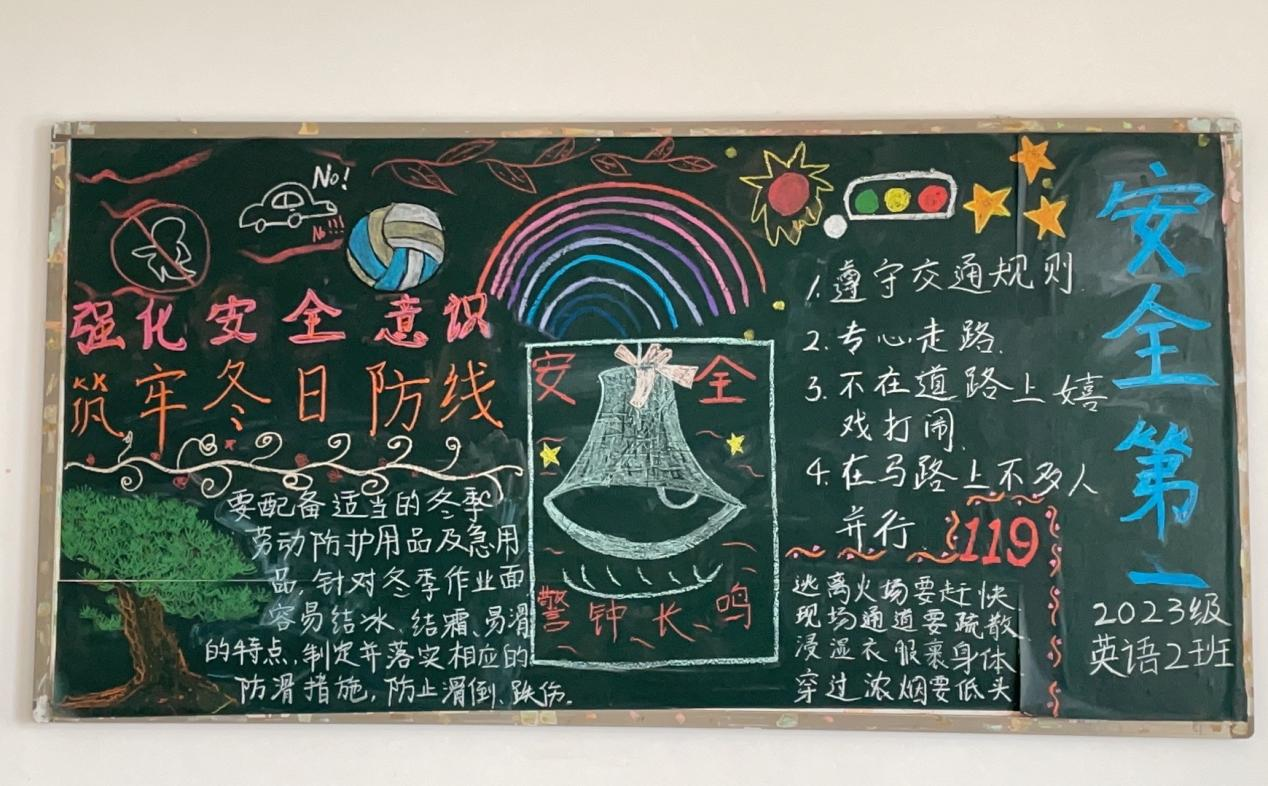 No!
No!!!
强化安全意识
筑牢冬日防线
要配备适当的冬季
劳动防护用品及急用
品,针对冬季作业面
容易结冰、结霜、易滑
的特点,制定并落实相应的
防滑措施,防止滑倒、跌伤。
安全
警钟长鸣
1.遵守交通规则.
2.专心走路.
3.不在道路上嬉
戏打闹.
4.在马路上不多人
并行.
119
逃离火场要赶快
现场通道要疏散
浸湿衣服裹身体
穿过浓烟要低头
安全第一
2023级
英语2班